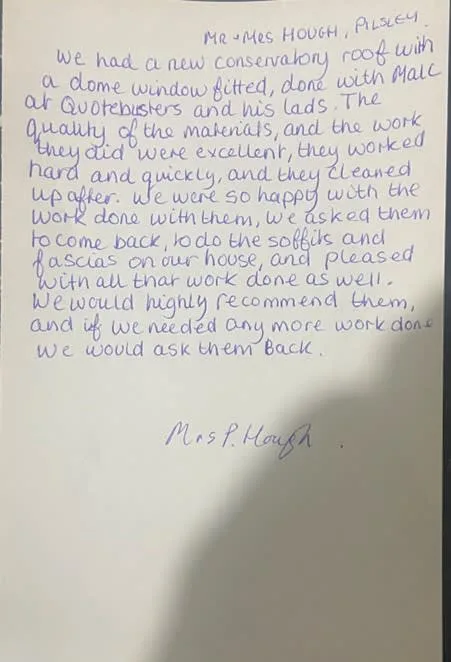 MR + MRS HOUGH, PILSLEY.
We had a new conservatory roof with
a dome window fitted, done with Malc
at Quotebusters and his lads. The
quality of the materials, and the work
they did were excellent, they worked
hard and quickly, and they cleaned
up after. We were so happy with the
work done with them, we asked them
to come back, to do the soffits and
fascias on our house, and pleased
with all that work done as well.
We would highly recommend them,
and if we needed any more work done
we would ask them back.
Mrs P. Hough.